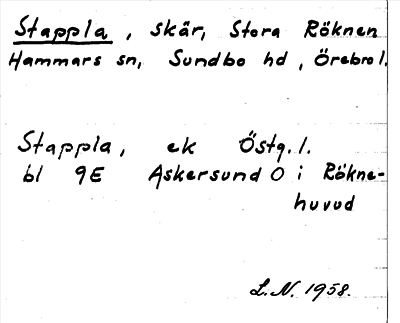 Stappla, skär, Stora Röknen
Hammars sn, Sundbo hd, Örebro l.
Stappla, ek Östg. l.
bl 9E Askersund O i Rökne-
huvud
L.N. 1958.